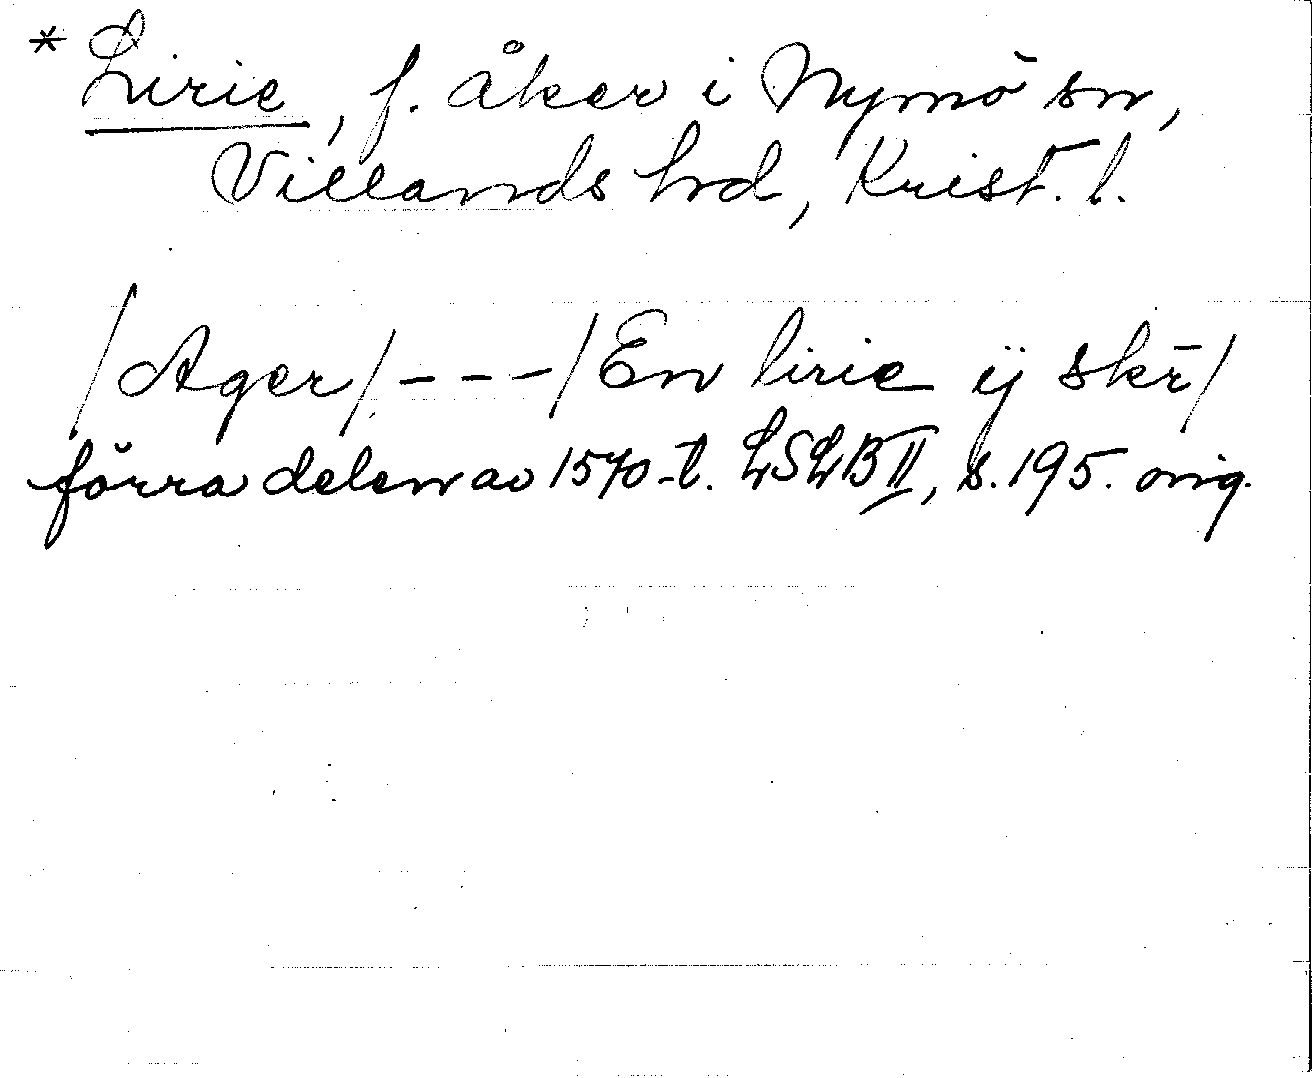 * Lirie, f. åker i Nymö sn,
Villands hd, Krist. l.
/Ager/ - - - /En lirie ij skr̄/
förra delen av 1570-t. LSLB II, s. 195. orig.